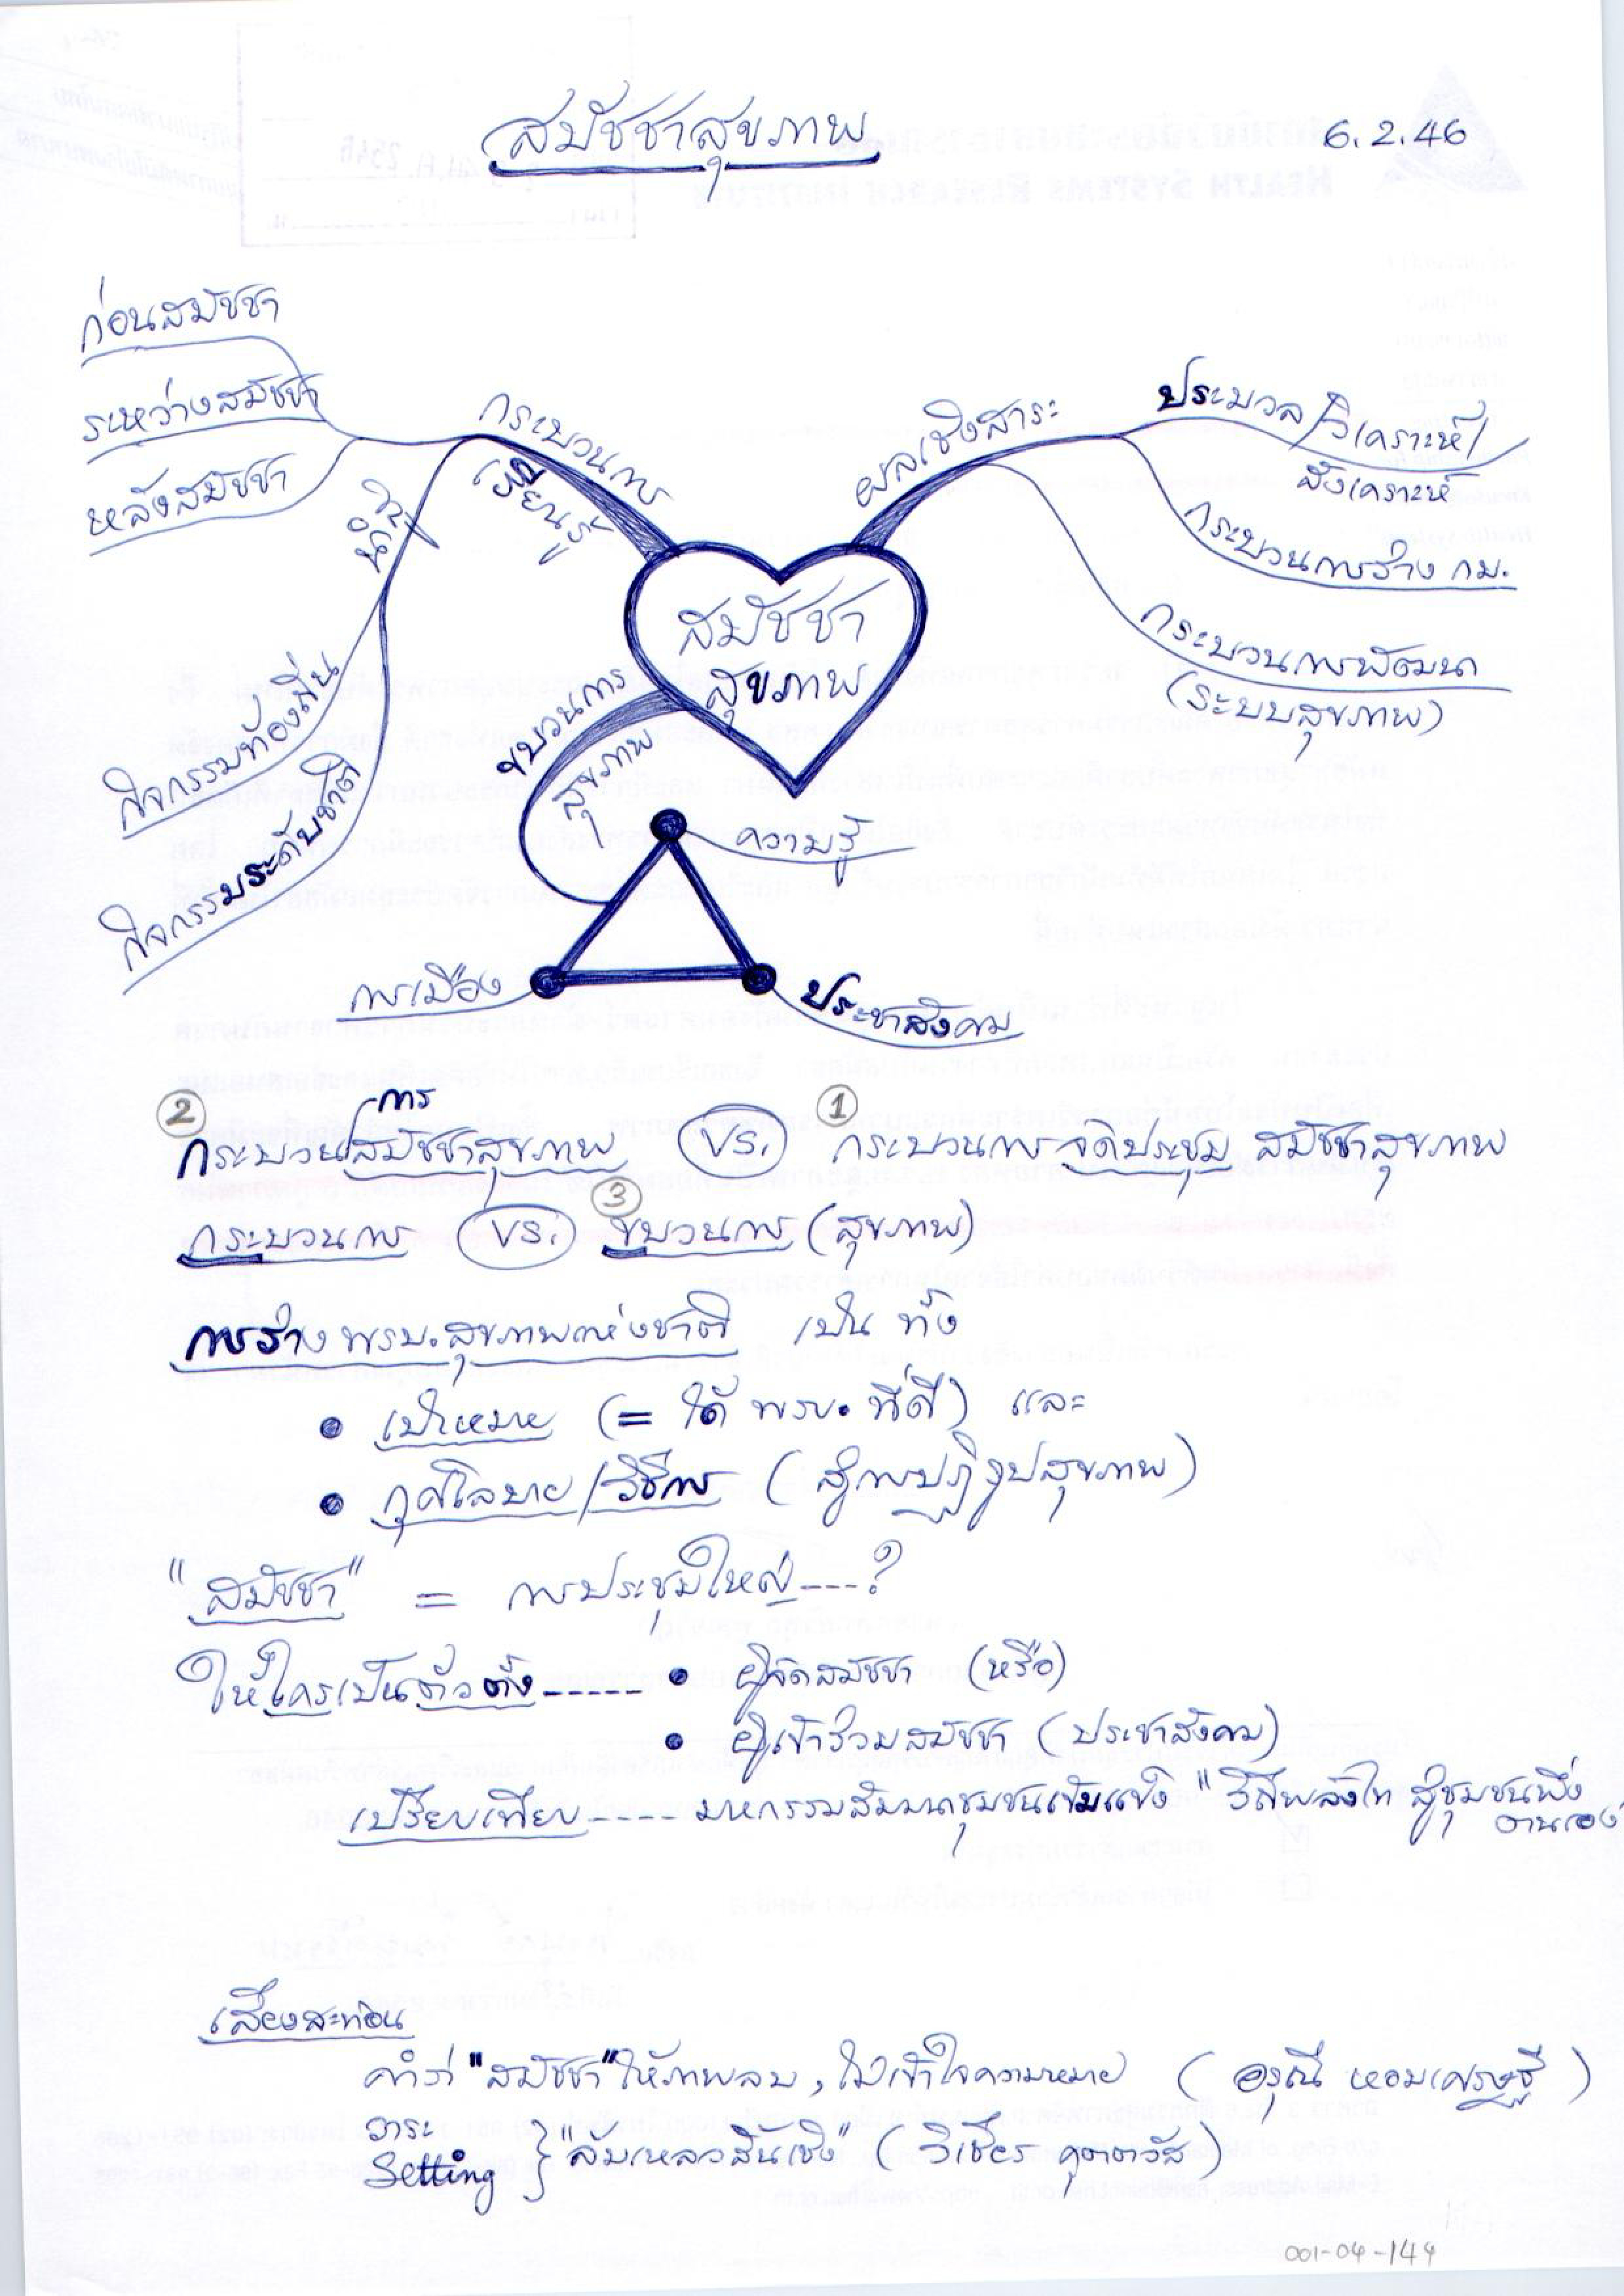 สมัชชาสุขภาพ
6.2.46
ก่อนสมัชชา
ระหว่างสมัชชา
หลังสมัชชา
กระบวนการ
เรียนรู้
กิจกรรมท้องถิ่น
กิจกรรมระดับชาติ
ผลเชิงสาระ
ประมวล/วิเคราะห์/
สังเคราะห์
กระบวนการร่าง กม.
กระบวนการพัฒนา
(ระบบสุขภาพ)
สมัชชา
สุขภาพ
ขบวนการ
สุขภาพ
ความรู้
การเมือง
ประชาสังคม
② การ ①
กระบวนสมัชชาสุขภาพ VS. กระบวนการจัดประชุม สมัชชาสุขภาพ
③
กระบวนการ VS. ขบวนการ (สุขภาพ)
การร่าง พรบ.สุขภาพแห่งชาติ เป็น ทั้ง
• เป้าหมาย (= ได้ พรบ. ที่ดี) และ
• กุศโลบาย/วิธีการ (สู่การปฏิรูปสุขภาพ)
"สมัชชา" = การประชุมใหญ่----?
ให้ใครเป็นตัวตั้ง----- • ผู้จัดสมัชชา (หรือ)
• ผู้เข้าร่วมสมัชชา (ประชาสังคม)
เปรียบเทียบ---- มหกรรมสัมมนาชุมชนเข้มแข็ง "วิถีพลังไท สู่ชุมชนพึ่ง
ตนเอง
เสียงสะท้อน
คำว่า "สมัชชา" ให้ภาพลบ, ไม่เข้าใจความหมาย (อรุณี หอมเศรษฐี)
วาระ
Setting } "ล้มเหลวสิ้นเชิง" (วิเชียร คุตตวัส)
001-04-144